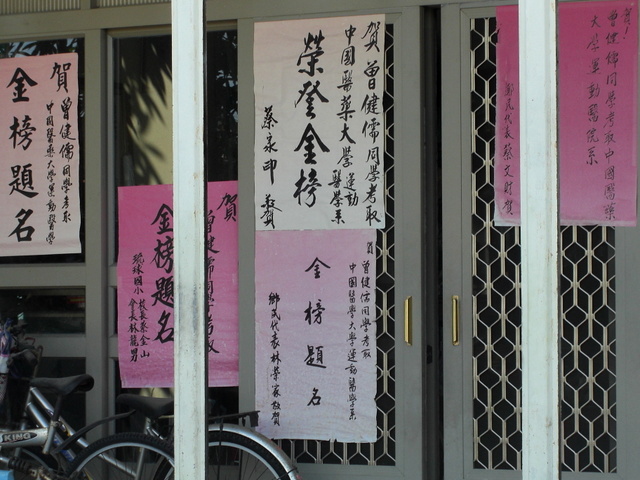 賀
曾健儒同學考取
中國醫藥大學運動醫學
金榜題名
賀
曾健儒同學考取
金榜題名
琉球國小
校長蔡金山
會長林龍男
賀曾健儒同學考取
中國醫藥大學運動
醫學系
榮登金榜
蔡永印
敬賀
賀
曾健儒同學考取
中國醫藥大學運動醫學系
金榜題名
鄉民代表林榮家敬賀
賀!
曾健儒同學考取中國醫
大學運動醫
系
鄉民代表蔡文財賀
KING